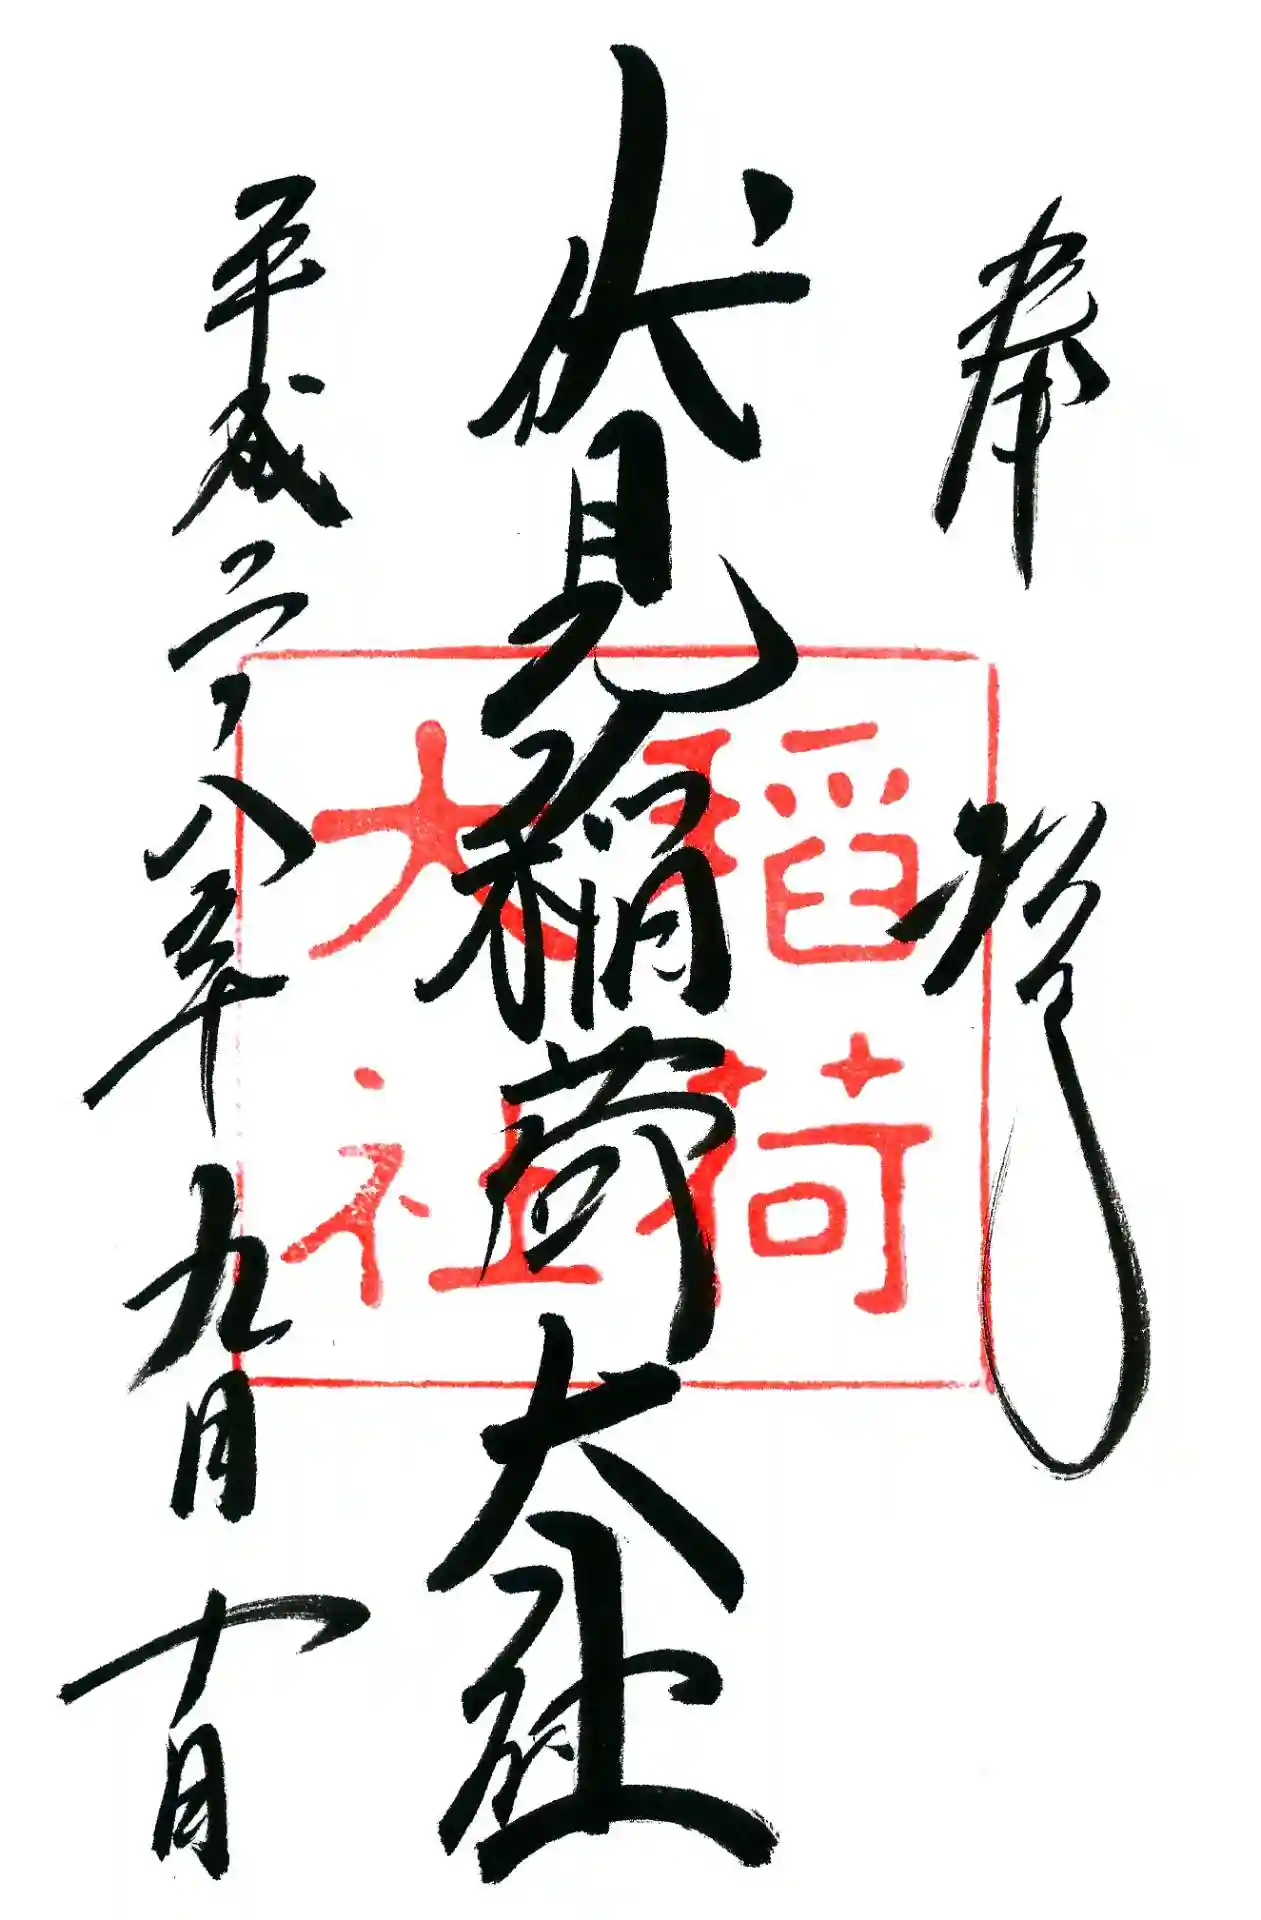 奉拝
伏見稲荷大社
平成二十八年九月十日
稲荷
大社